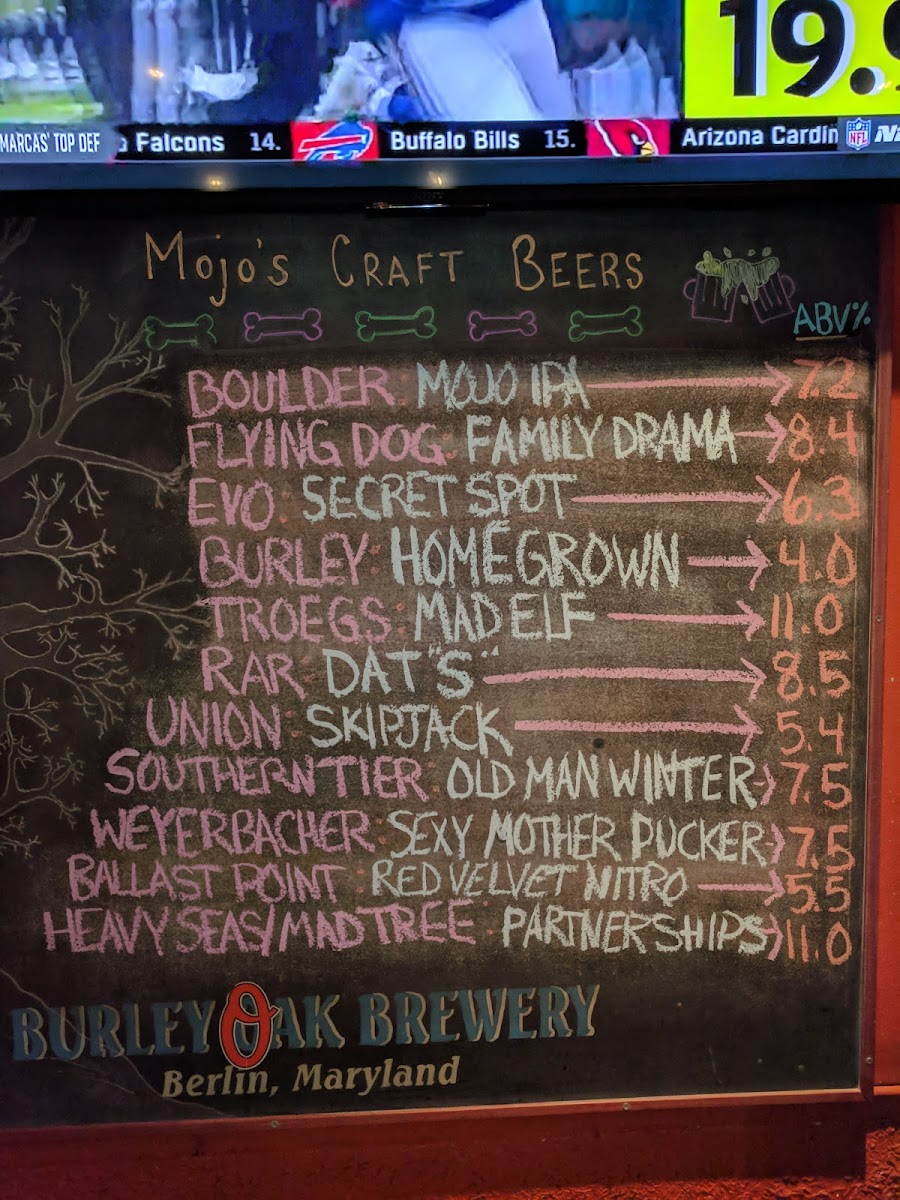 19.9
MARCAS' TOP DEF Falcons 14. Buffalo Bills 15. Arizona Cardin NFL
Mojo's CRAFT BEERS
ABV%
BOULDER: MOJO IPA 7.2
FLYING DOG: FAMILY DRAMA 8.4
EVO: SECRET SPOT 6.3
BURLEY: HOMEGROWN 4.0
TROEGS: MAD ELF 11.0
RAR: DAT "S" 8.5
UNION: SKIPJACK 5.4
SOUTHERN TIER: OLD MAN WINTER 7.5
WEYERBACHER: SEXY MOTHER PUCKER 7.5
BALLAST POINT: RED VELVET NITRO 5.5
HEAVY SEAS/MADTREE: PARTNERSHIPS 11.0
BURLEY OAK BREWERY
Berlin, Maryland